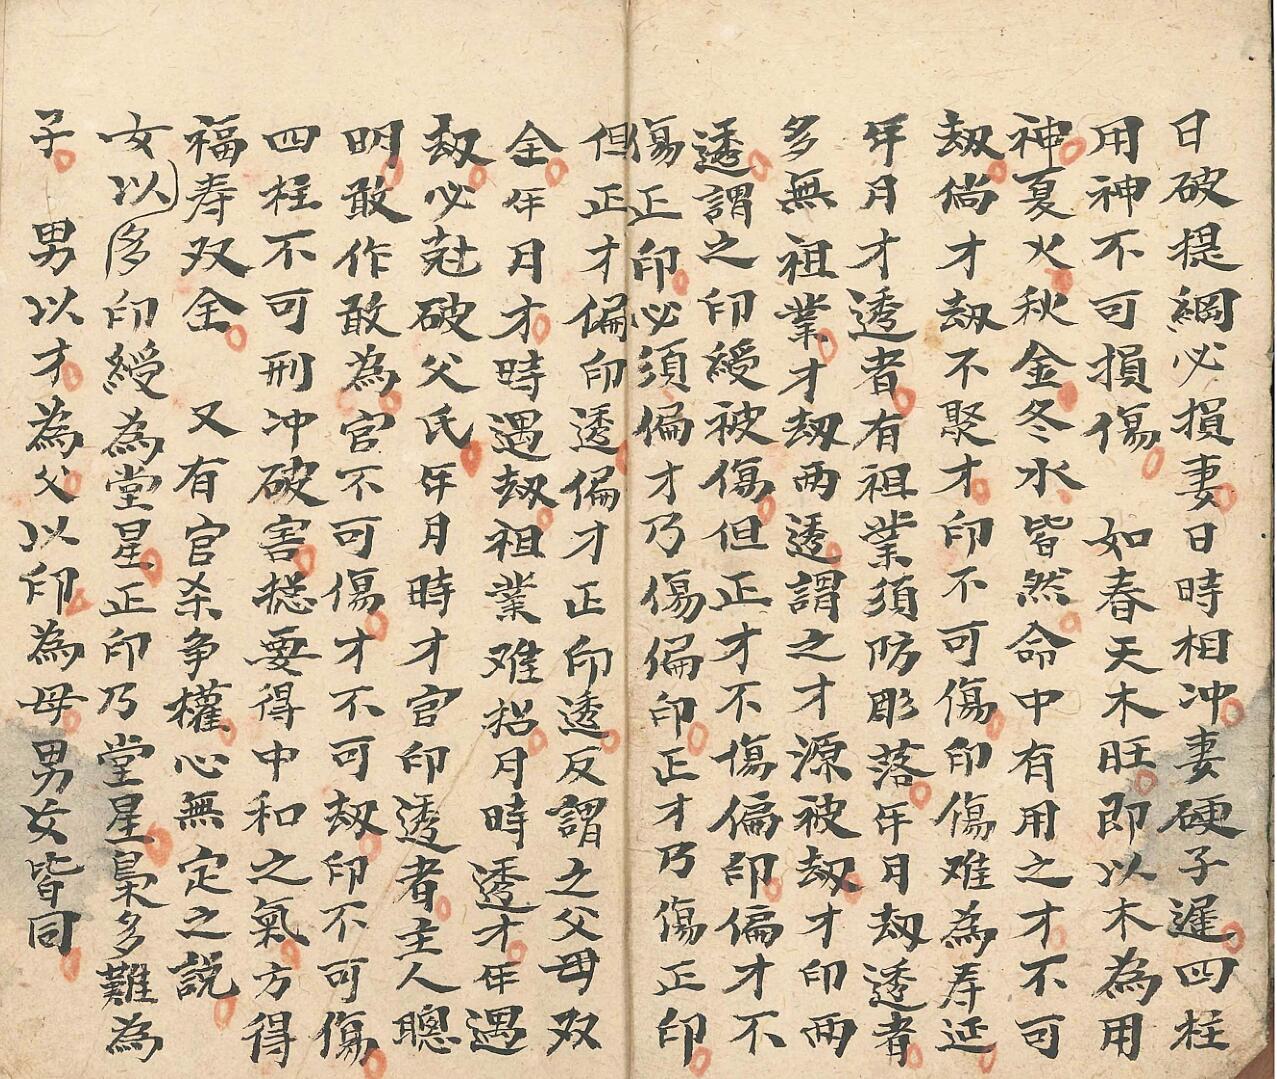 日破提綱必損妻日時相冲妻硬子遲四柱
用神不可損傷　如春天木旺即以木為用
神夏火秋金冬水皆然命中有用之才不可
劫倘才劫不聚才印不可傷印傷难為寿延
年月才透者有祖業須防彫落年月劫透者
多無祖業才劫两透謂之才源被劫才印两
透謂之印綬被傷但正才不傷偏印偏才不
傷正印必須偏才乃傷偏印正才乃傷正印
但正才偏印透偏才正印透反謂之父母双
全年月才時遇劫祖業难招月時透才年遇
劫必尅破父氏年月時才官印透者主人聰
明敢作敢為官不可傷才不可劫印不可傷
四柱不可刑冲破害揔要得中和之氣方得
福寿双全　又有官杀争權心無定之説
女以印綬為堂星正印乃堂星梟多難為
子　男以才為父以印為母男女皆同